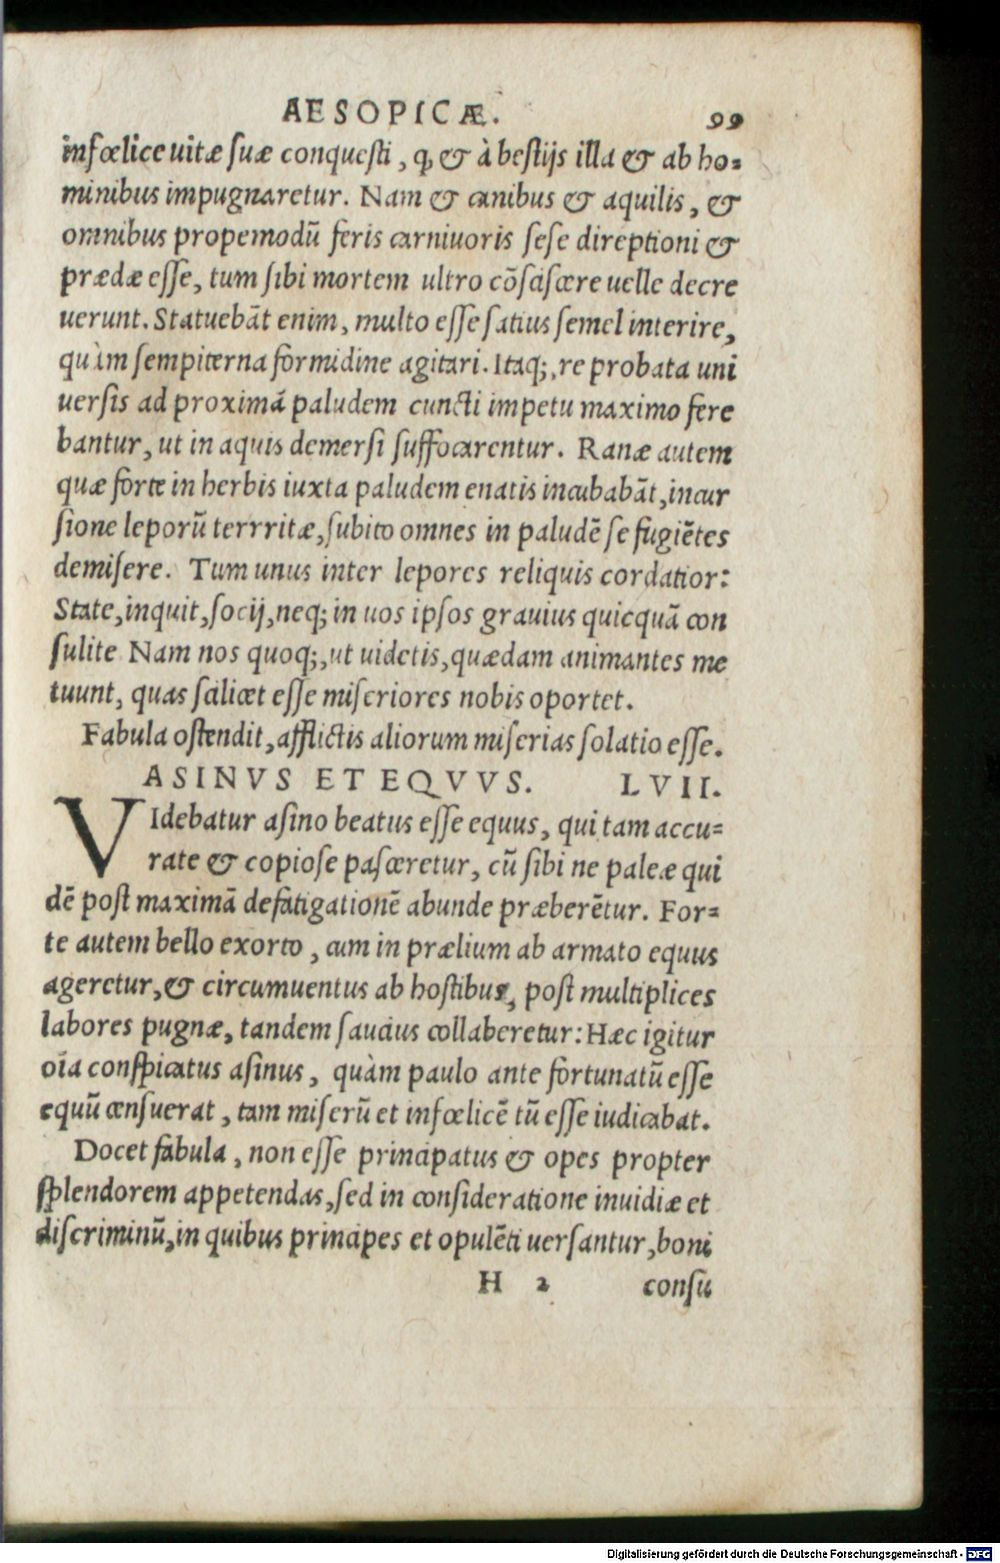 AESOPICÆ. 99
infœlice uitæ suæ conquesti, ꝙ & à bestijs illa & ab ho-
minibus impugnaretur. Nam & canibus & aquilis, &
omnibus propemodũ feris carniuoris sese direptioni &
prædæ esse, tum sibi mortem ultro cõsciscere uelle decre
uerunt. Statuebãt enim, multo esse satius semel interire,
quàm sempiterna formidine agitari. Itaq;, re probata uni
uersis ad proximã paludem cuncti impetu maximo fere
bantur, ut in aquis demersi suffocarentur. Ranæ autem
quæ forte in herbis iuxta paludem enatis incubabãt, incur
sione leporũ terrritæ, subito omnes in paludẽ se fugiẽtes
demisere. Tum unus inter lepores reliquis cordatior:
State, inquit, socij, neq; in uos ipsos grauius quicquã con
sulite Nam nos quoq;, ut uidetis, quædam animantes me
tuunt, quas scilicet esse miseriores nobis oportet.
Fabula ostendit, afflictis aliorum miserias solatio esse.
ASINVS ET EQVVS. LVII.
VIdebatur asino beatus esse equus, qui tam accu-
rate & copiose pasceretur, cũ sibi ne paleæ qui
dẽ post maximã defatigationẽ abunde præberẽtur. For-
te autem bello exorto, cum in prælium ab armato equus
ageretur, & circumuentus ab hostibus, post multiplices
labores pugnæ, tandem saucius collaberetur: Hæc igitur
oĩa conspicatus asinus, quàm paulo ante fortunatũ esse
equũ censuerat, tam miserũ et infœlicẽ tũ esse iudicabat.
Docet fabula, non esse principatus & opes propter
splendorem appetendas, sed in consideratione inuidiæ et
discriminũ, in quibus principes et opulẽti uersantur, boni
H 2 consu
Digitalisierung gefördert durch die Deutsche Forschungsgemeinschaft - DFG